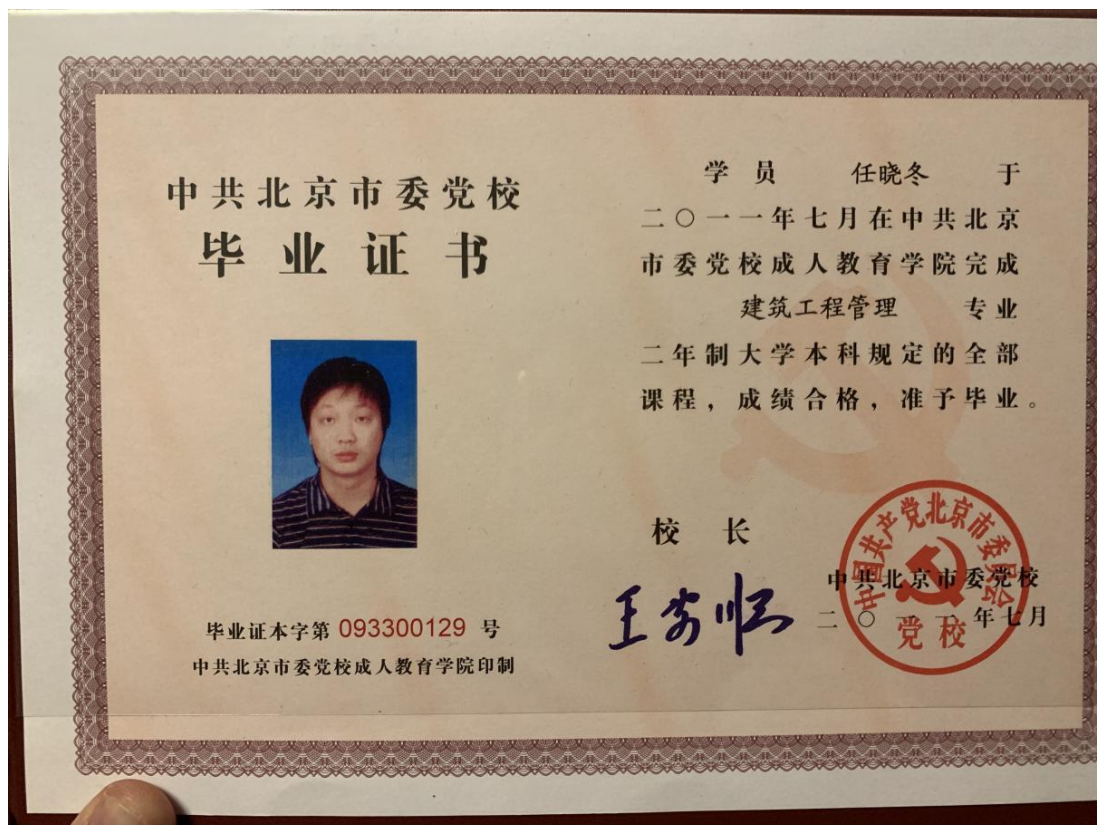 中共北京市委党校
毕业证书
毕业证本字第 093300129 号
中共北京市委党校成人教育学院印制
学员 任晓冬 于
二〇一一年七月在中共北京
市委党校成人教育学院完成
建筑工程管理 专业
二年制大学本科规定的全部
课程，成绩合格，准予毕业。
校长
王安顺
中共北京市委党校
二〇一一年七月
中国共产党北京市委员会
党校